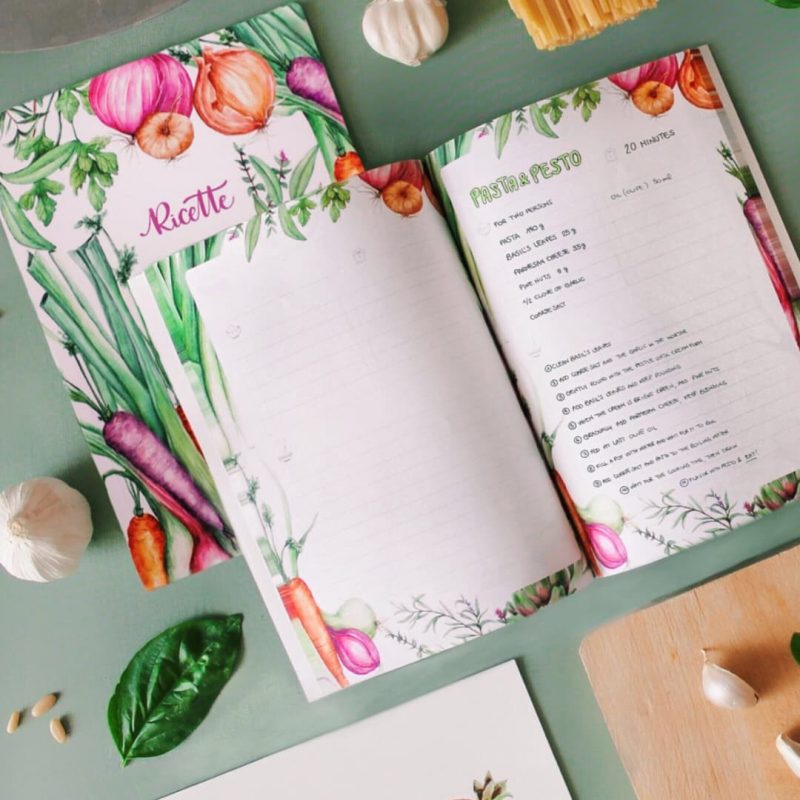 Ricette
PASTA & PESTO
20 MINUTES
FOR TWO PERSONS
OIL (OLIVE) 50 ml
PASTA 190 g
BASIL'S LEAVES 25 g
PARMESAN CHEESE 35 g
PINE NUTS 8 g
1/2 CLOVE OF GARLIC
COARSE SALT
① CLEAN BASIL'S LEAVES
② ADD COARSE SALT AND THE GARLIC IN THE MORTAR
③ GENTLY POUND WITH THE PESTLE UNTIL CREAM FORM
④ ADD BASIL'S LEAVES AND KEEP POUNDING
⑤ WHEN THE CREAM IS BRIGHT GREEN, ADD PINE NUTS
⑥ GRADUALLY ADD PARMESAN CHEESE, KEEP BLENDING
⑦ ADD AT LAST OLIVE OIL
⑧ FILL A POT WITH WATER AND WAIT FOR IT TO BOIL
⑨ ADD COARSE SALT AND PASTA TO THE BOILING WATER
⑩ WAIT FOR THE COOKING TIME, THEN DRAIN
⑪ FLAVOR WITH PESTO & EAT!